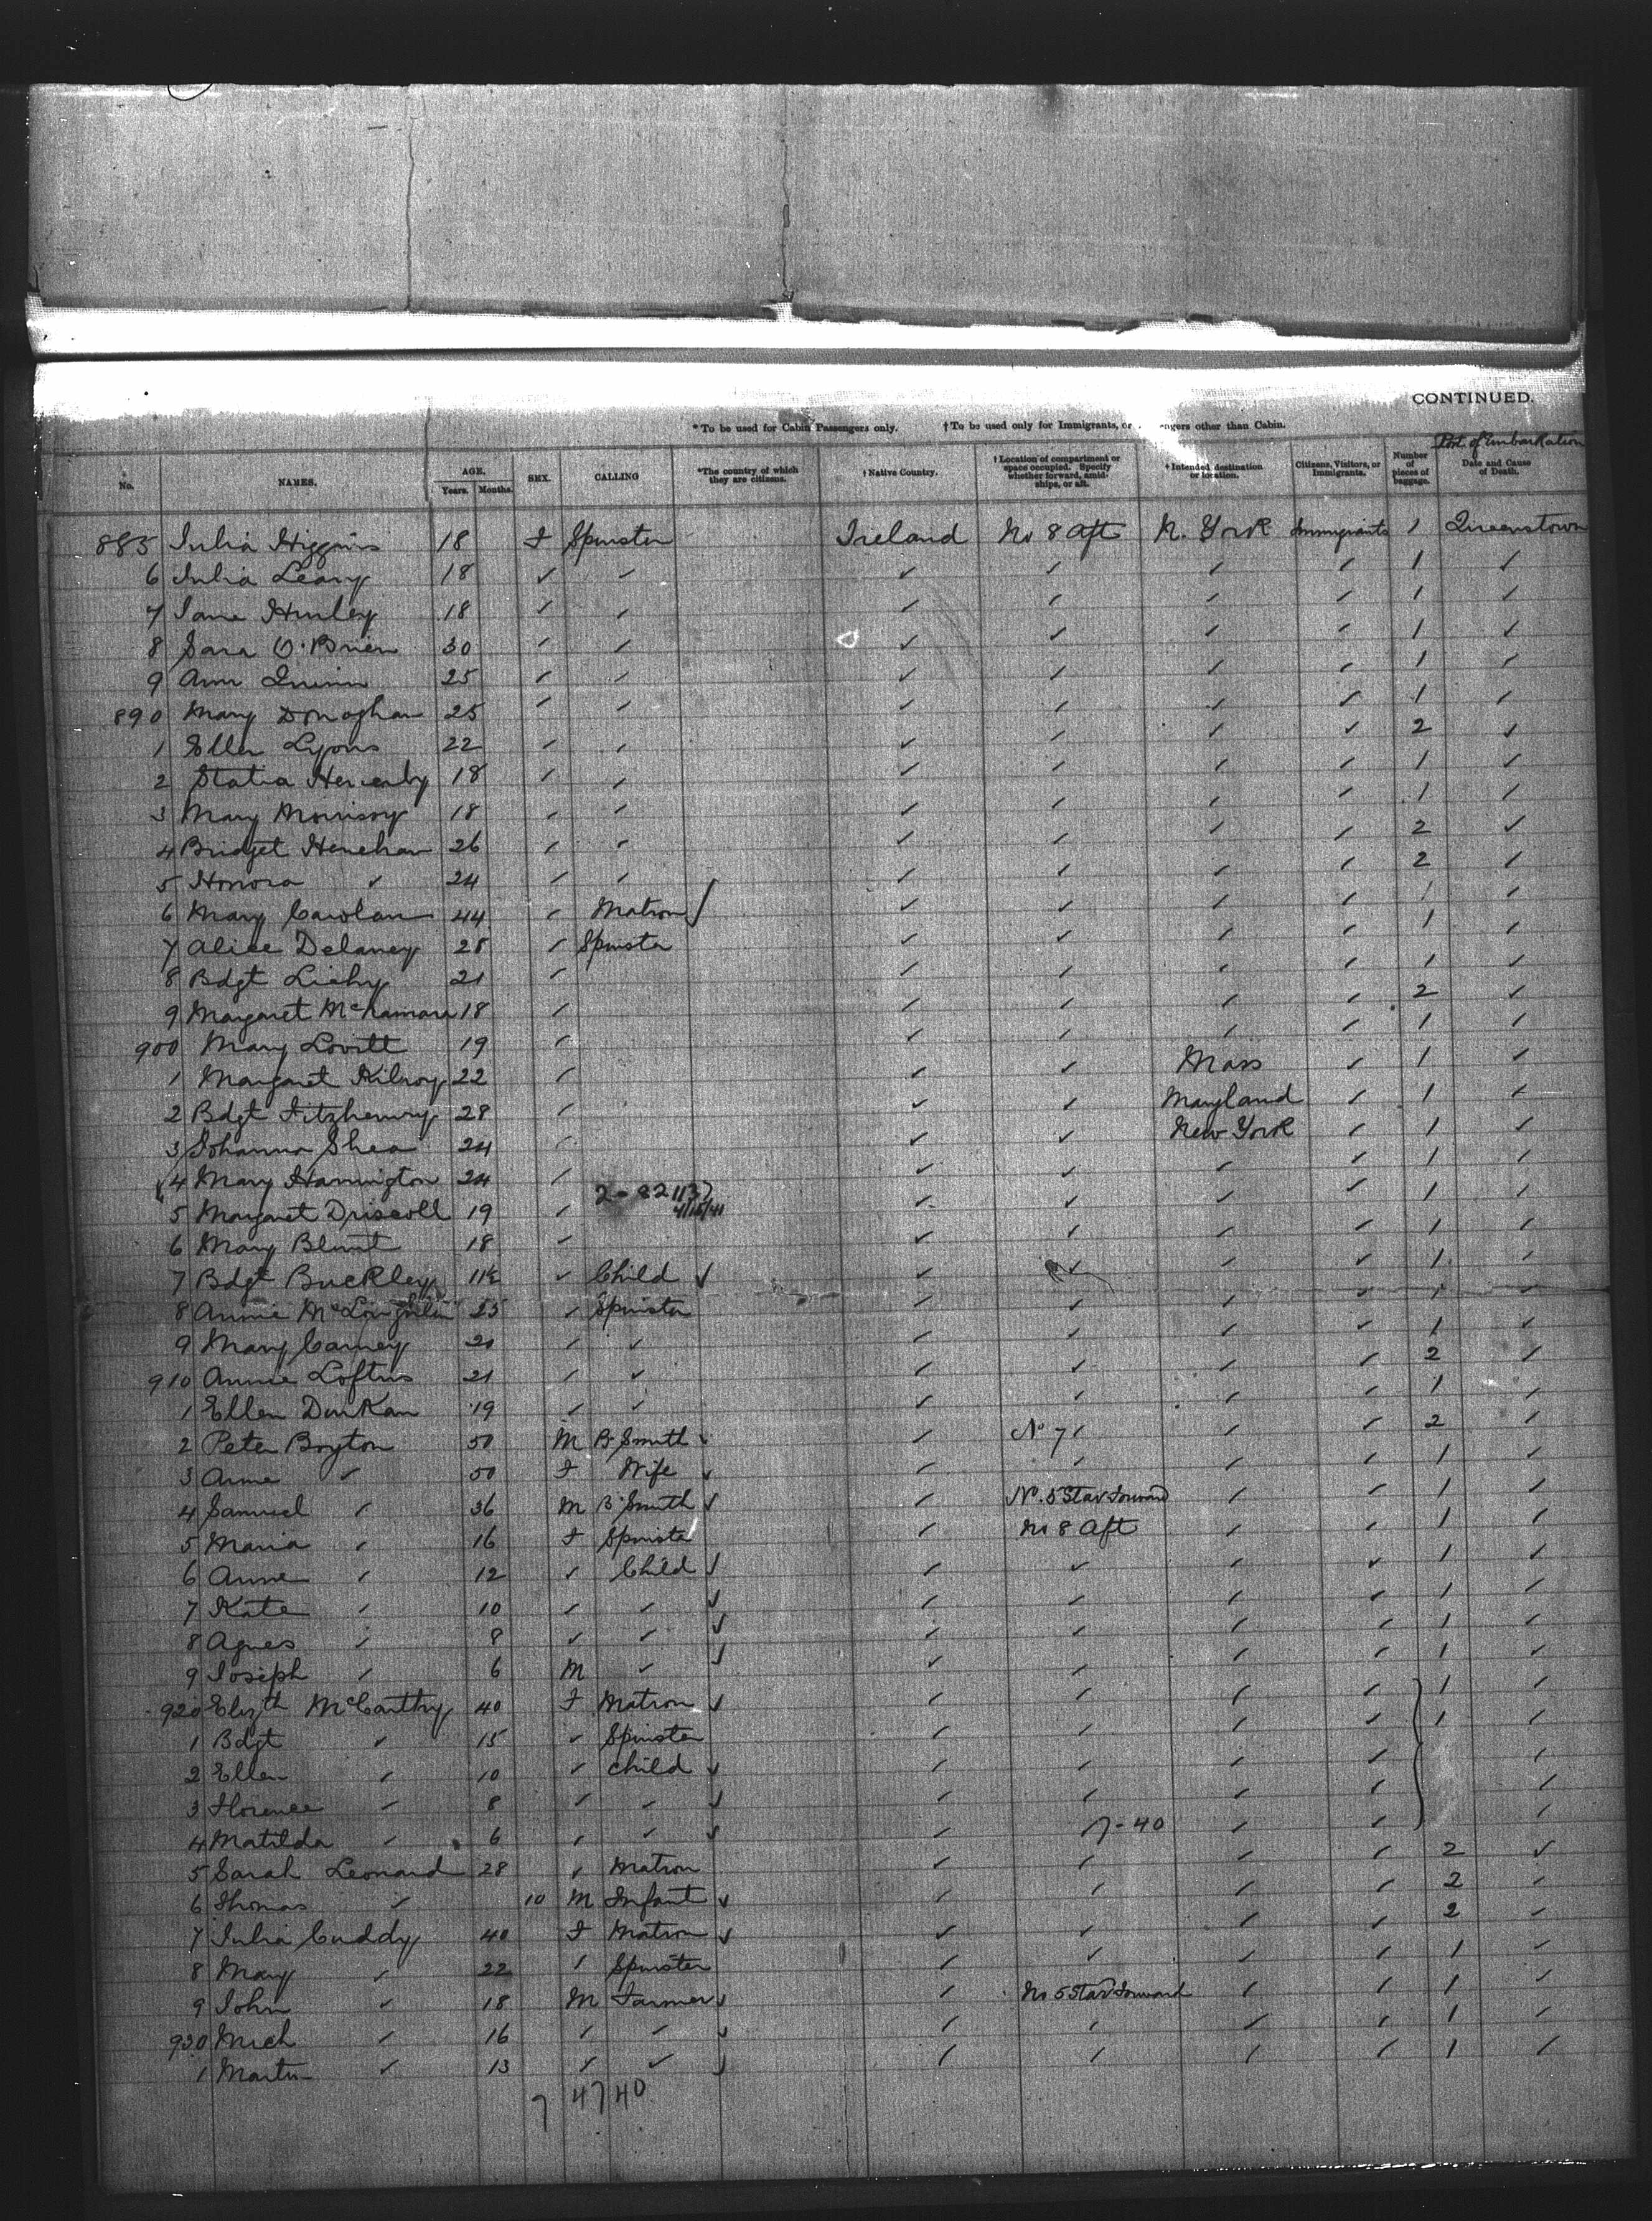 CONTINUED.
* To be used for Cabin Passengers only. † To be used only for Immigrants, or ngers other than Cabin.
Port of Embarkation
No. NAMES. AGE. Years. Months. SEX. CALLING *The country of which they are citizens. † Native Country. † Location of compartment or space occupied. Specify whether forward, amidships, or aft. † Intended destination or location. Citizens, Visitors, or Immigrants. Number of pieces of baggage. Date and Cause of Death.
885 Julia Higgins 18 F Spinster Ireland No 8 Aft N. York Immigrants 1 Queenstown
6 Julia Leary 18 ✓ ✓ ✓ ✓ ✓ ✓ 1 ✓
7 Jane Hurley 18 ✓ ✓ ✓ ✓ ✓ ✓ 1 ✓
8 Sara O'Brien 30 ✓ ✓ ✓ ✓ ✓ ✓ 1 ✓
9 Ann Quinn 25 ✓ ✓ ✓ ✓ ✓ ✓ 1 ✓
890 Mary Donoghan 25 ✓ ✓ ✓ ✓ ✓ ✓ 1 ✓
1 Ellen Lyons 22 ✓ ✓ ✓ ✓ ✓ ✓ 2 ✓
2 Statia 18 ✓ ✓ ✓ ✓ ✓ ✓ 1 ✓
3 Mary Morrissy 18 ✓ ✓ ✓ ✓ ✓ ✓ 1 ✓
4 Bridget Henehan 26 ✓ ✓ ✓ ✓ ✓ ✓ 2 ✓
5 Honora ✓ 24 ✓ ✓ ✓ ✓ ✓ ✓ 2 ✓
6 Mary Carolan 44 ✓ Matron ✓ ✓ ✓ ✓ ✓ 1 ✓
7 Alice Delaney 28 ✓ Spinster ✓ ✓ ✓ ✓ 1 ✓
8 Bdgt Liehy 21 ✓ ✓ ✓ ✓ ✓ 1 ✓
9 Margaret McNamara 18 ✓ ✓ ✓ ✓ ✓ 2 ✓
900 Mary Lovitt 19 ✓ ✓ ✓ ✓ ✓ 1 ✓
1 Margaret Kilroy 22 ✓ ✓ ✓ Mass ✓ 1 ✓
2 Bdgt Fitzhenry 28 ✓ ✓ ✓ Maryland ✓ 1 ✓
3 Johanna Shea 24 ✓ ✓ ✓ New York ✓ 1 ✓
4 Mary Harrington 24 ✓ ✓ ✓ ✓ ✓ 1 ✓
2-821137
4/15/41
5 Margaret Driscoll 19 ✓ ✓ ✓ ✓ ✓ 1 ✓
6 Mary Blunt 18 ✓ ✓ ✓ ✓ ✓ 1 ✓
7 Bdgt Buckley 11½ ✓ Child ✓ ✓ ✓ ✓ ✓ 1 ✓
8 Annie McLoughlin 25 ✓ Spinster ✓ ✓ ✓ ✓ 1 ✓
9 Mary Carney 20 ✓ ✓ ✓ ✓ ✓ ✓ 1 ✓
910 Annie Loftus 21 ✓ ✓ ✓ ✓ ✓ ✓ 2 ✓
1 Ellen Durkan 19 ✓ ✓ ✓ ✓ ✓ ✓ 1 ✓
2 Peter Boyton 50 M B. Smith ✓ ✓ No 7 ✓ ✓ 2 ✓
3 Anne ✓ 50 F Wife ✓ ✓ ✓ ✓ ✓ 1 ✓
4 Samuel ✓ 36 M B. Smith ✓ ✓ No. 5 Star Forward ✓ ✓ 1 ✓
5 Maria ✓ 16 F Spinster ✓ No 8 Aft ✓ ✓ 1 ✓
6 Anne ✓ 12 ✓ Child ✓ ✓ ✓ ✓ ✓ 1 ✓
7 Kate ✓ 10 ✓ ✓ ✓ ✓ ✓ ✓ ✓ 1 ✓
8 Agnes ✓ 8 ✓ ✓ ✓ ✓ ✓ ✓ ✓ 1 ✓
9 Joseph ✓ 6 M ✓ ✓ ✓ ✓ ✓ ✓ 1 ✓
920 Elizth McCarthy 40 F Matron ✓ ✓ ✓ ✓ ✓ 1 ✓
1 Bdgt ✓ 15 ✓ Spinster ✓ ✓ ✓ ✓ 1 ✓
2 Ellen ✓ 10 ✓ Child ✓ ✓ ✓ ✓ ✓ ✓
3 Florence ✓ 8 ✓ ✓ ✓ ✓ ✓ ✓ ✓ ✓
4 Matilda ✓ 6 ✓ ✓ ✓ ✓ 7-40 ✓ ✓ ✓
5 Sarah Leonard 28 ✓ Matron ✓ ✓ ✓ ✓ 2 ✓
6 Thomas ✓ 10 M Infant ✓ ✓ ✓ ✓ ✓ 2 ✓
7 Julia Cuddy 40 F Matron ✓ ✓ ✓ ✓ ✓ 2 ✓
8 Mary ✓ 22 ✓ Spinster ✓ ✓ ✓ ✓ 1 ✓
9 John ✓ 18 M Farmer ✓ ✓ No 5 Star Forward ✓ ✓ 1 ✓
930 Mich ✓ 16 ✓ ✓ ✓ ✓ ✓ ✓ ✓ 1 ✓
1 Martin ✓ 13 ✓ ✓ ✓ ✓ ✓ ✓ ✓ 1 ✓
7 47 40